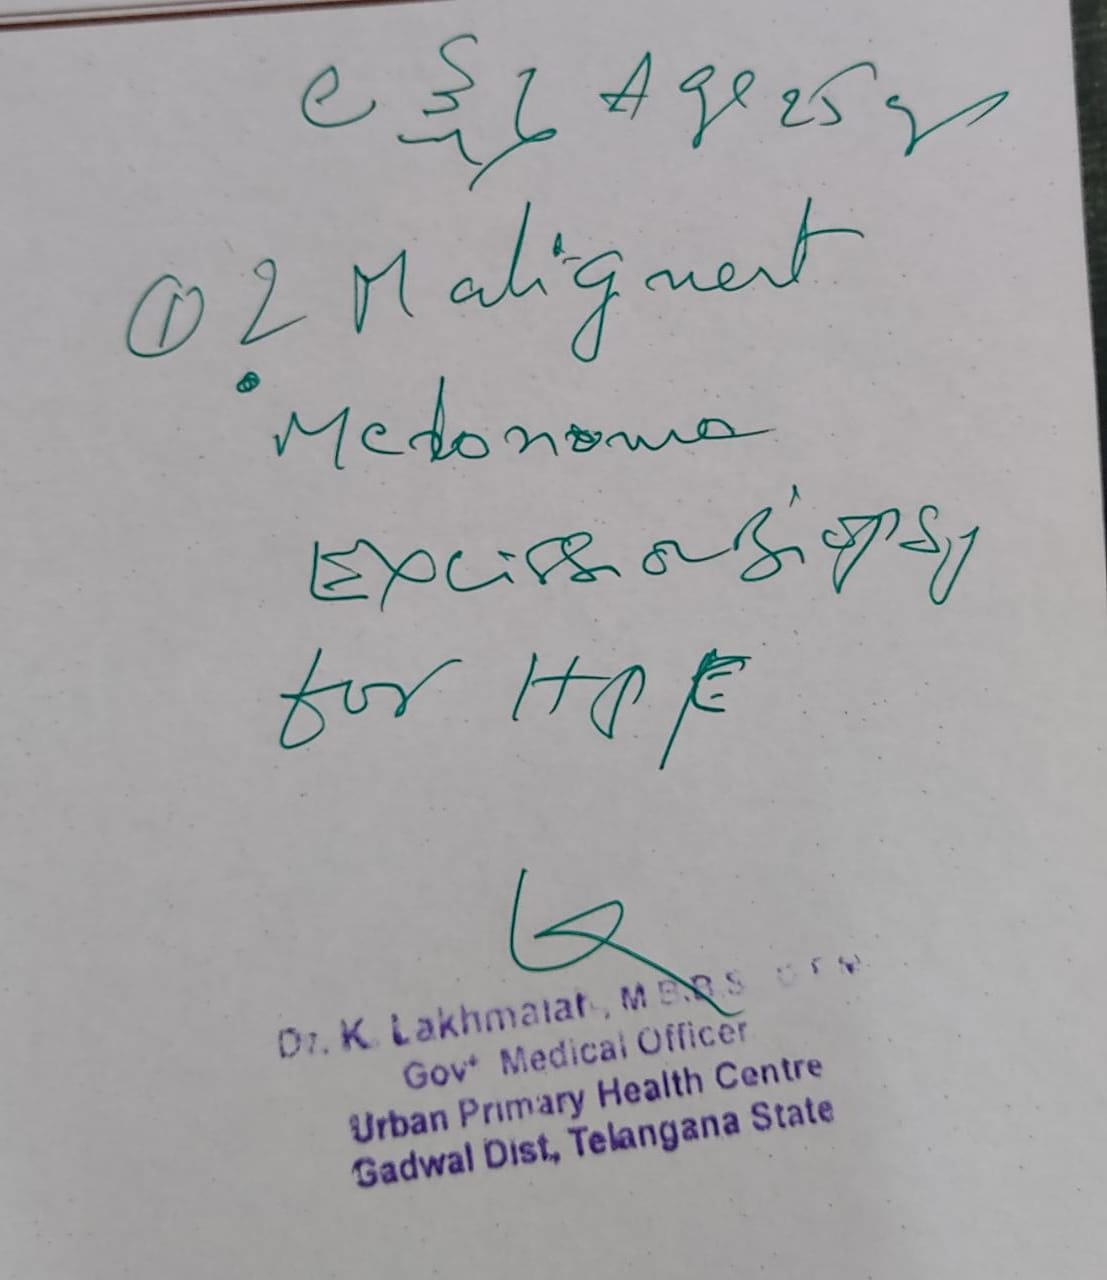 Age 25 y
① 2 Malignent
Melonoma
Excision Biopsy
for HPE
Dr. K. Lakhmaiah, M.B.B.S
Govt Medical Officer
Urban Primary Health Centre
Gadwal Dist, Telangana State